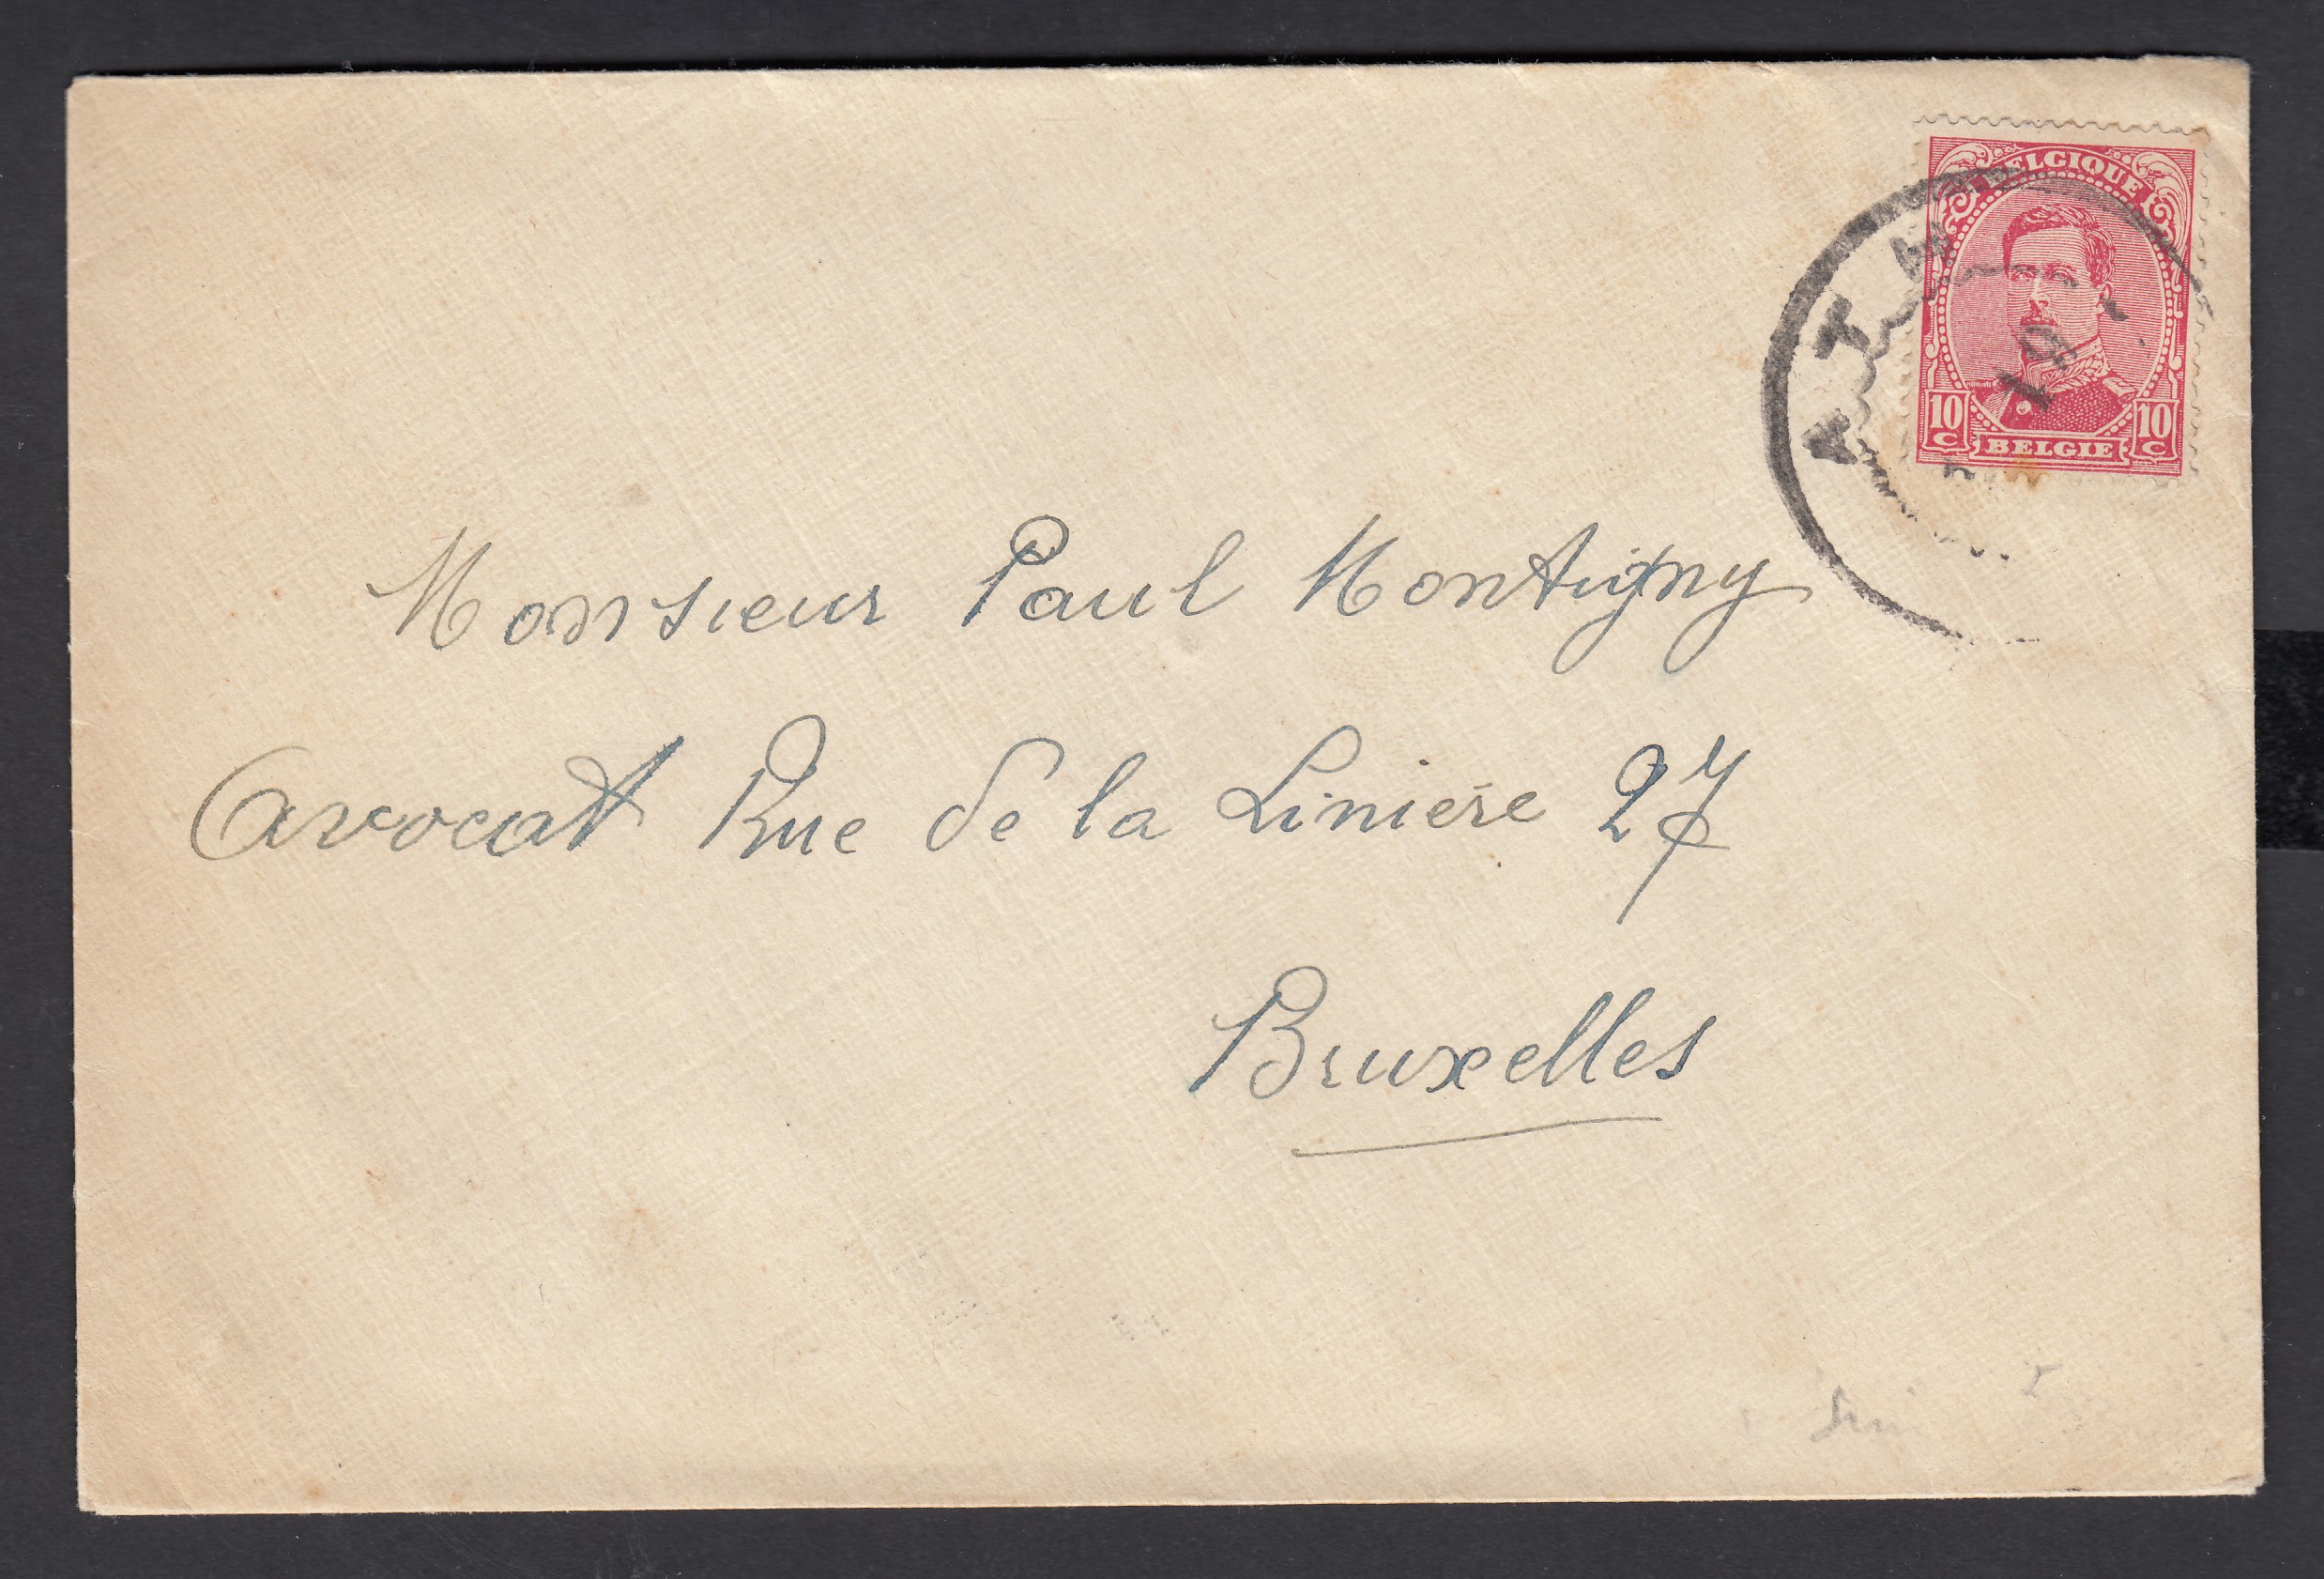 BELGIQUE
10 C
10 C
BELGIE
ATH
19
Monsieur Paul Montigny
Avocat Rue de la Liniere 27
Bruxelles